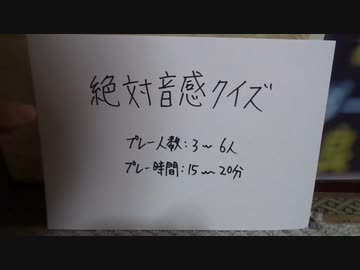 絶対音感クイズ
プレー人数：3〜6人
プレー時間：15〜20分